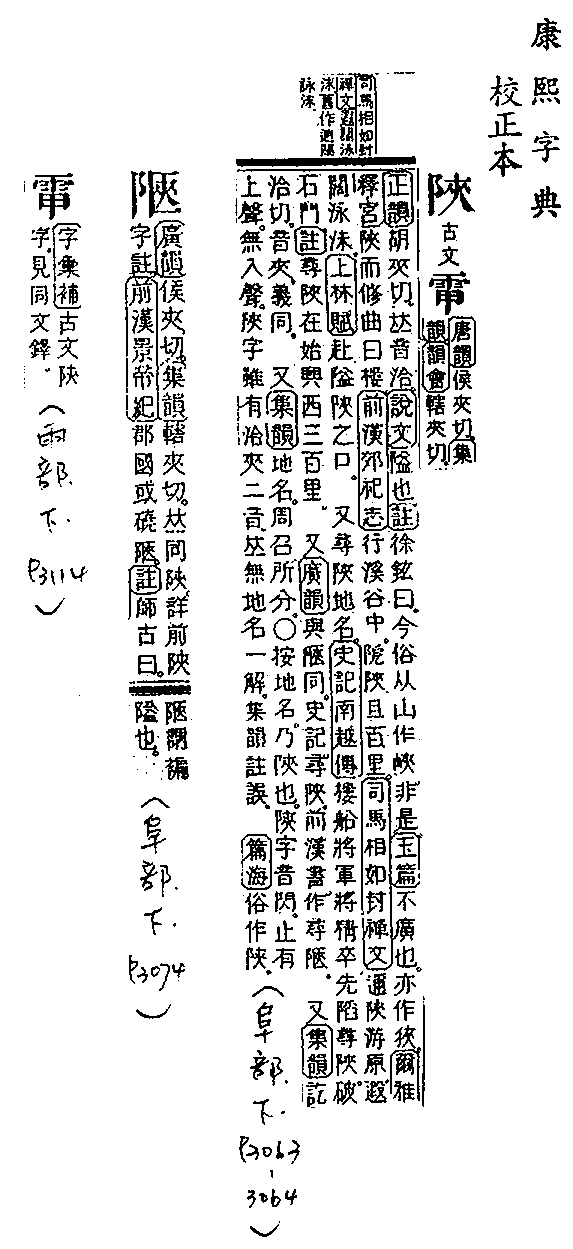 康熙字典
校正本
司馬相如封
禪文遐闊泳
沬舊作遊隰
詠沫
陝
古文
唐韻侯夾切集
韻韻會轄夾切
正韻胡夾切𠀤音洽說文隘也註徐鉉曰今俗从山作峽非是玉篇不廣也亦作狹爾雅
釋宮陝而修曲曰樓前漢郊祀志行溪谷中阸陝且百里司馬相如封禪文邇陝游原遐
闊泳沬上林賦赴隘陝之口 又尋陝地名史記南越傳樓船將軍將精卒先陷尋陝破
石門註尋陝在始興西三百里 又廣韻與陿同史記尋陝前漢書作尋陿 又集韻訖
洽切音夾義同 又集韻地名周召所分〇按地名乃陜也陜字音閃止有
上聲無入聲陝字雖有洽夾二音𠀤無地名一解集韻註誤 篇海俗作陕
(阜部下
P3063-3064)
陿
廣韻侯夾切集韻轄夾切𠀤同陝詳前陝
字註前漢景帝紀郡國或磽陿註師古曰
陿謂褊
隘也
(阜部下
P3074)
字彙補古文陝
字見同文鐸
(雨部下
P3114)